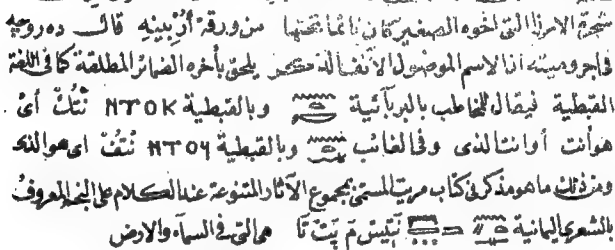 شجرة الارز التى اخوه الصغير كان نائما تحتها من ورقة أُرْبِينِهِ قال ده روچه
فى اجروميته اذا الاسم الموصول الانفعالة يلحق بأخره الضمائر المطلقة كما فى اللغة
القبطية فيقال للمخاطب بالبربائية وبالقبطية ⲚⲦⲞⲔ نْتُكْ أىْ
هو أنت أو انت الذى وفى الغائب وبالقبطية ⲚⲦⲞϤ نْتُفْ اى هو الذى
ومن ذلك ما هو مذكر فى كتاب مريت المسمى بمجموع الآثار المتنوعة عند الكلام على النجم المعروف
بالشعرى اليمانية نَتِيسْ مَ پِتْ تَا هى التى فى السماء والارض